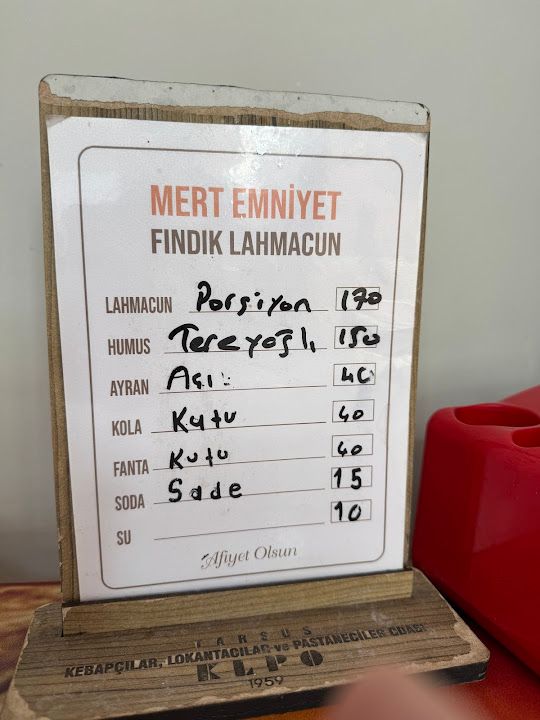 MERT EMNİYET
FINDIK LAHMACUN
LAHMACUN Porsiyon 170
HUMUS Tereyağlı 150
AYRAN Açı 40
KOLA Kutu 40
FANTA Kutu 40
SODA Sade 15
SU 10
Afiyet Olsun
TARSUS
KEBAPÇILAR, LOKANTACILAR ve PASTANECİLER ODASI
KLPO
1959